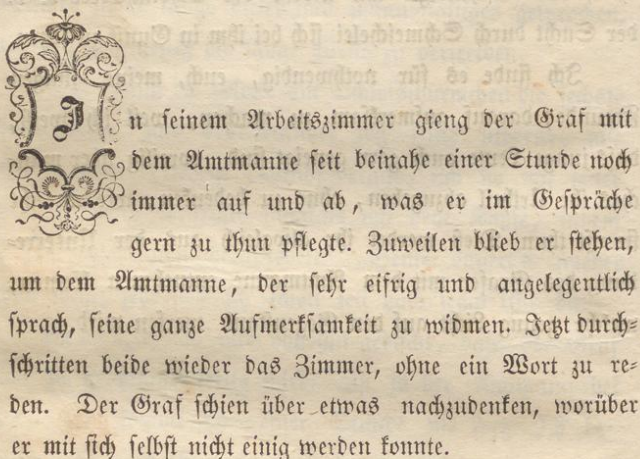 In seinem Arbeitszimmer gieng der Graf mit
dem Amtmanne seit beinahe einer Stunde noch
immer auf und ab, was er im Gespräche
gern zu thun pflegte. Zuweilen blieb er stehen,
um dem Amtmanne, der sehr eifrig und angelegentlich
sprach, seine ganze Aufmerksamkeit zu widmen. Jetzt durch-
schritten beide wieder das Zimmer, ohne ein Wort zu re-
den. Der Graf schien über etwas nachzudenken, worüber
er mit sich selbst nicht einig werden konnte.